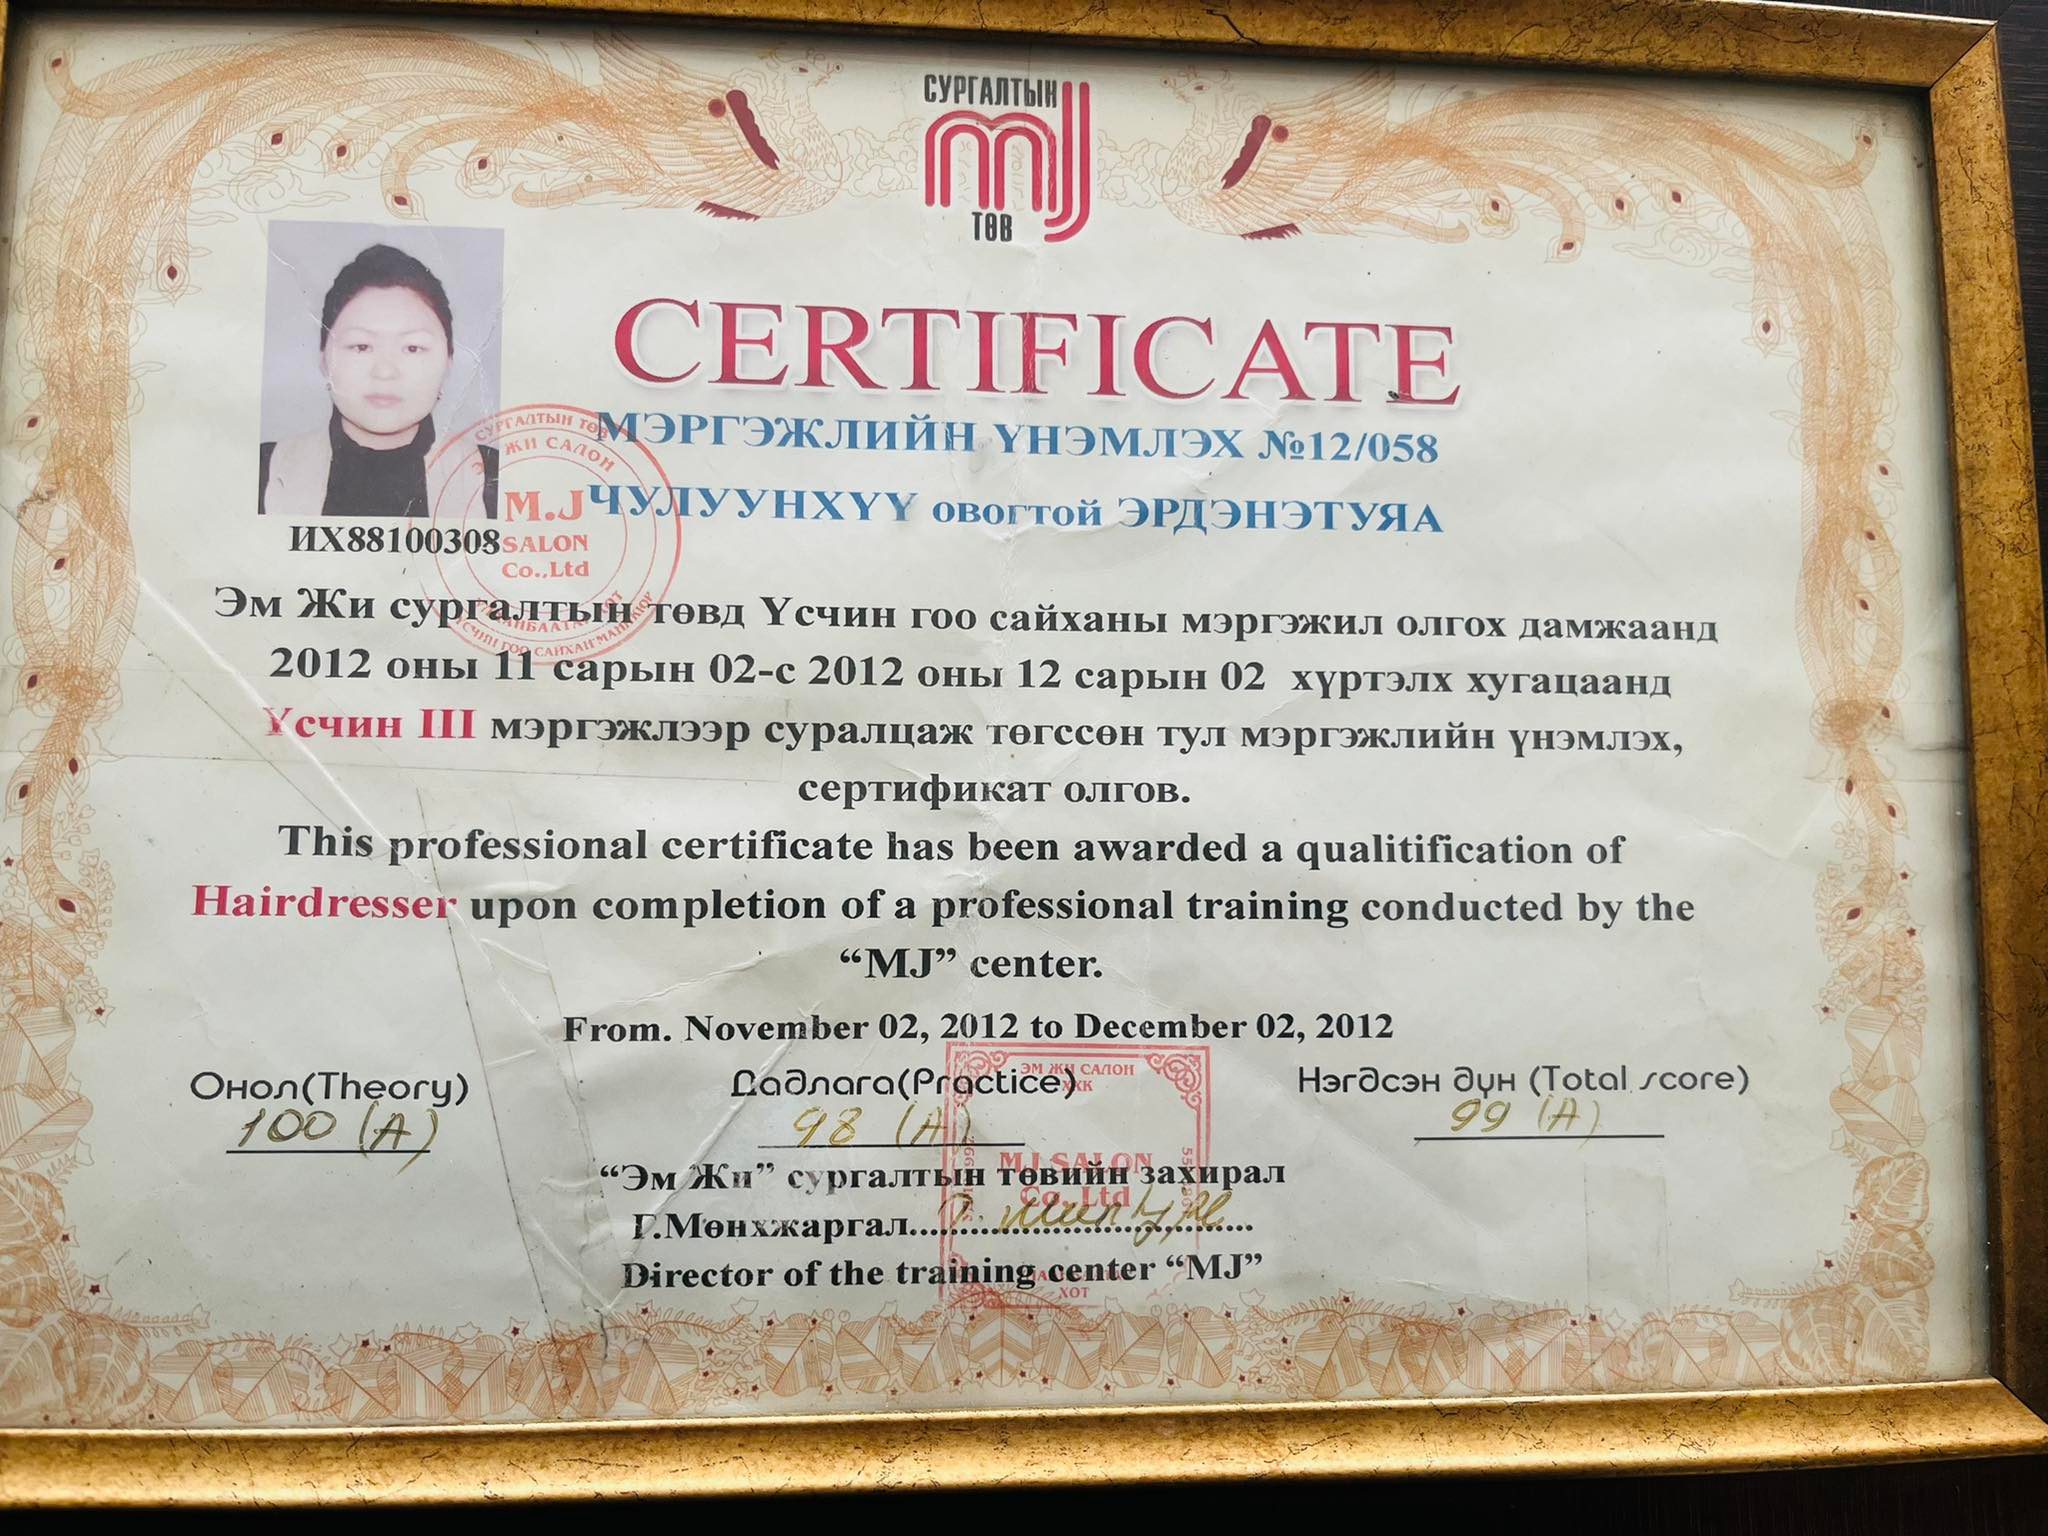 СУРГАЛТЫН
MJ
ТӨВ
CERTIFICATE
МЭРГЭЖЛИЙН ҮНЭМЛЭХ №12/058
ЧУЛУУНХҮҮ овогтой ЭРДЭНЭТУЯА
ИХ88100308
СУРГАЛТЫН ТӨВ
ЭМ ЖИ САЛОН
M.J
SALON
Co.,Ltd
Эм Жи сургалтын төвд Үсчин гоо сайханы мэргэжил олгох дамжаанд
2012 оны 11 сарын 02-с 2012 оны 12 сарын 02 хүртэлх хугацаанд
Үсчин III мэргэжлээр суралцаж төгссөн тул мэргэжлийн үнэмлэх,
сертификат олгов.
This professional certificate has been awarded a qualitification of
Hairdresser upon completion of a professional training conducted by the
“MJ” center.
From. November 02, 2012 to December 02, 2012
Онол(Theory) Дадлага(Practice) Нэгдсэн дүн (Total score)
100 (A) 98 (A) 99 (A)
ЭМ ЖИ САЛОН
ХХК
MJ SALON
Co.,Ltd
ХОТ
“Эм Жи” сургалтын төвийн захирал
Г.Мөнхжаргал....................................
Director of the training center “MJ”